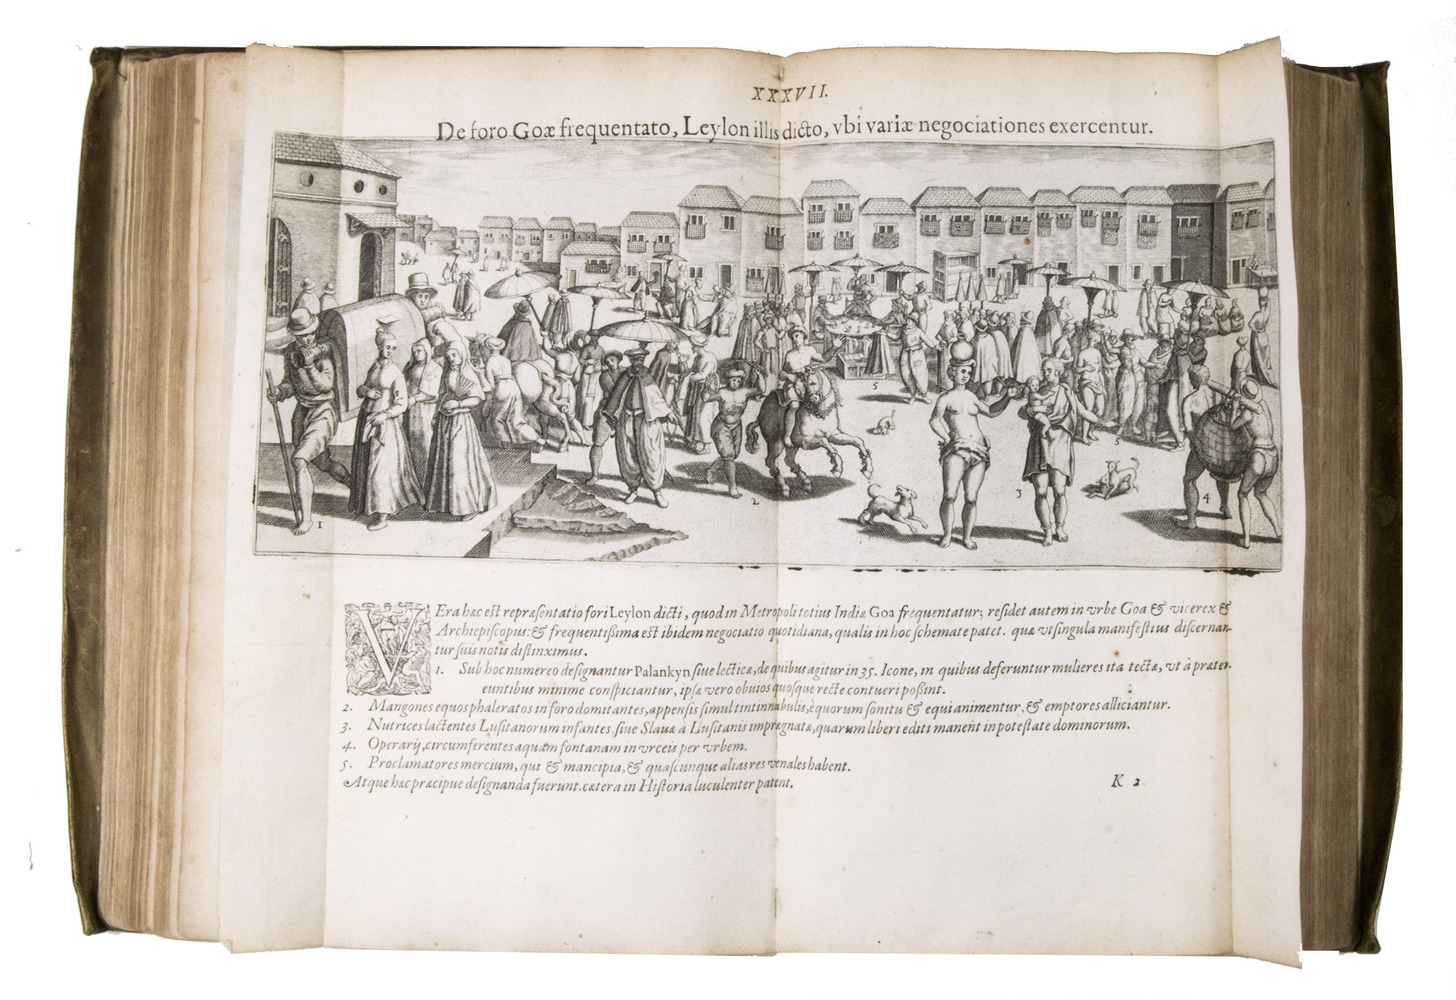 XXXVII.
De foro Goæ frequentato, Leylon illis dicto, vbi variæ negociationes exercentur.
1
2
3
4
5
VEra hæc est repræsentatio fori Leylon dicti, quod in Metropoli totius Indiæ Goa frequentatur; residet autem in vrbe Goa & vicerex &
Archiepiscopus: & frequentißima est ibidem negociatio quotidiana, qualis in hoc schemate patet. quæ vt singula manifestius discernan-
tur suis notis distinximus.
1. Sub hoc numereo designantur Palankyn siue lecticæ, de quibus agitur in 35. Icone, in quibus deferuntur mulieres ita tectæ, vt à præter-
euntibus minime conspiciantur, ipsæ vero obuios quosque recte contueri poßint.
2. Mangones equos phaleratos in foro domitantes, appensis simul tintinnabulis, equorum sonitu & equi animentur, & emptores alliciantur.
3. Nutrices lactentes Lusitanorum infantes, siue Slauæ à Lusitanis imprægnatæ, quarum liberi editi manent in potestate dominorum.
4. Operarij, circumferentes aquam fontanam in vrceis per vrbem.
5. Proclamatores mercium, qui & mancipia, & quascunque alias res venales habent.
Atque hæc præcipue designanda fuerunt. cætera in Historia luculenter patent.
K 2